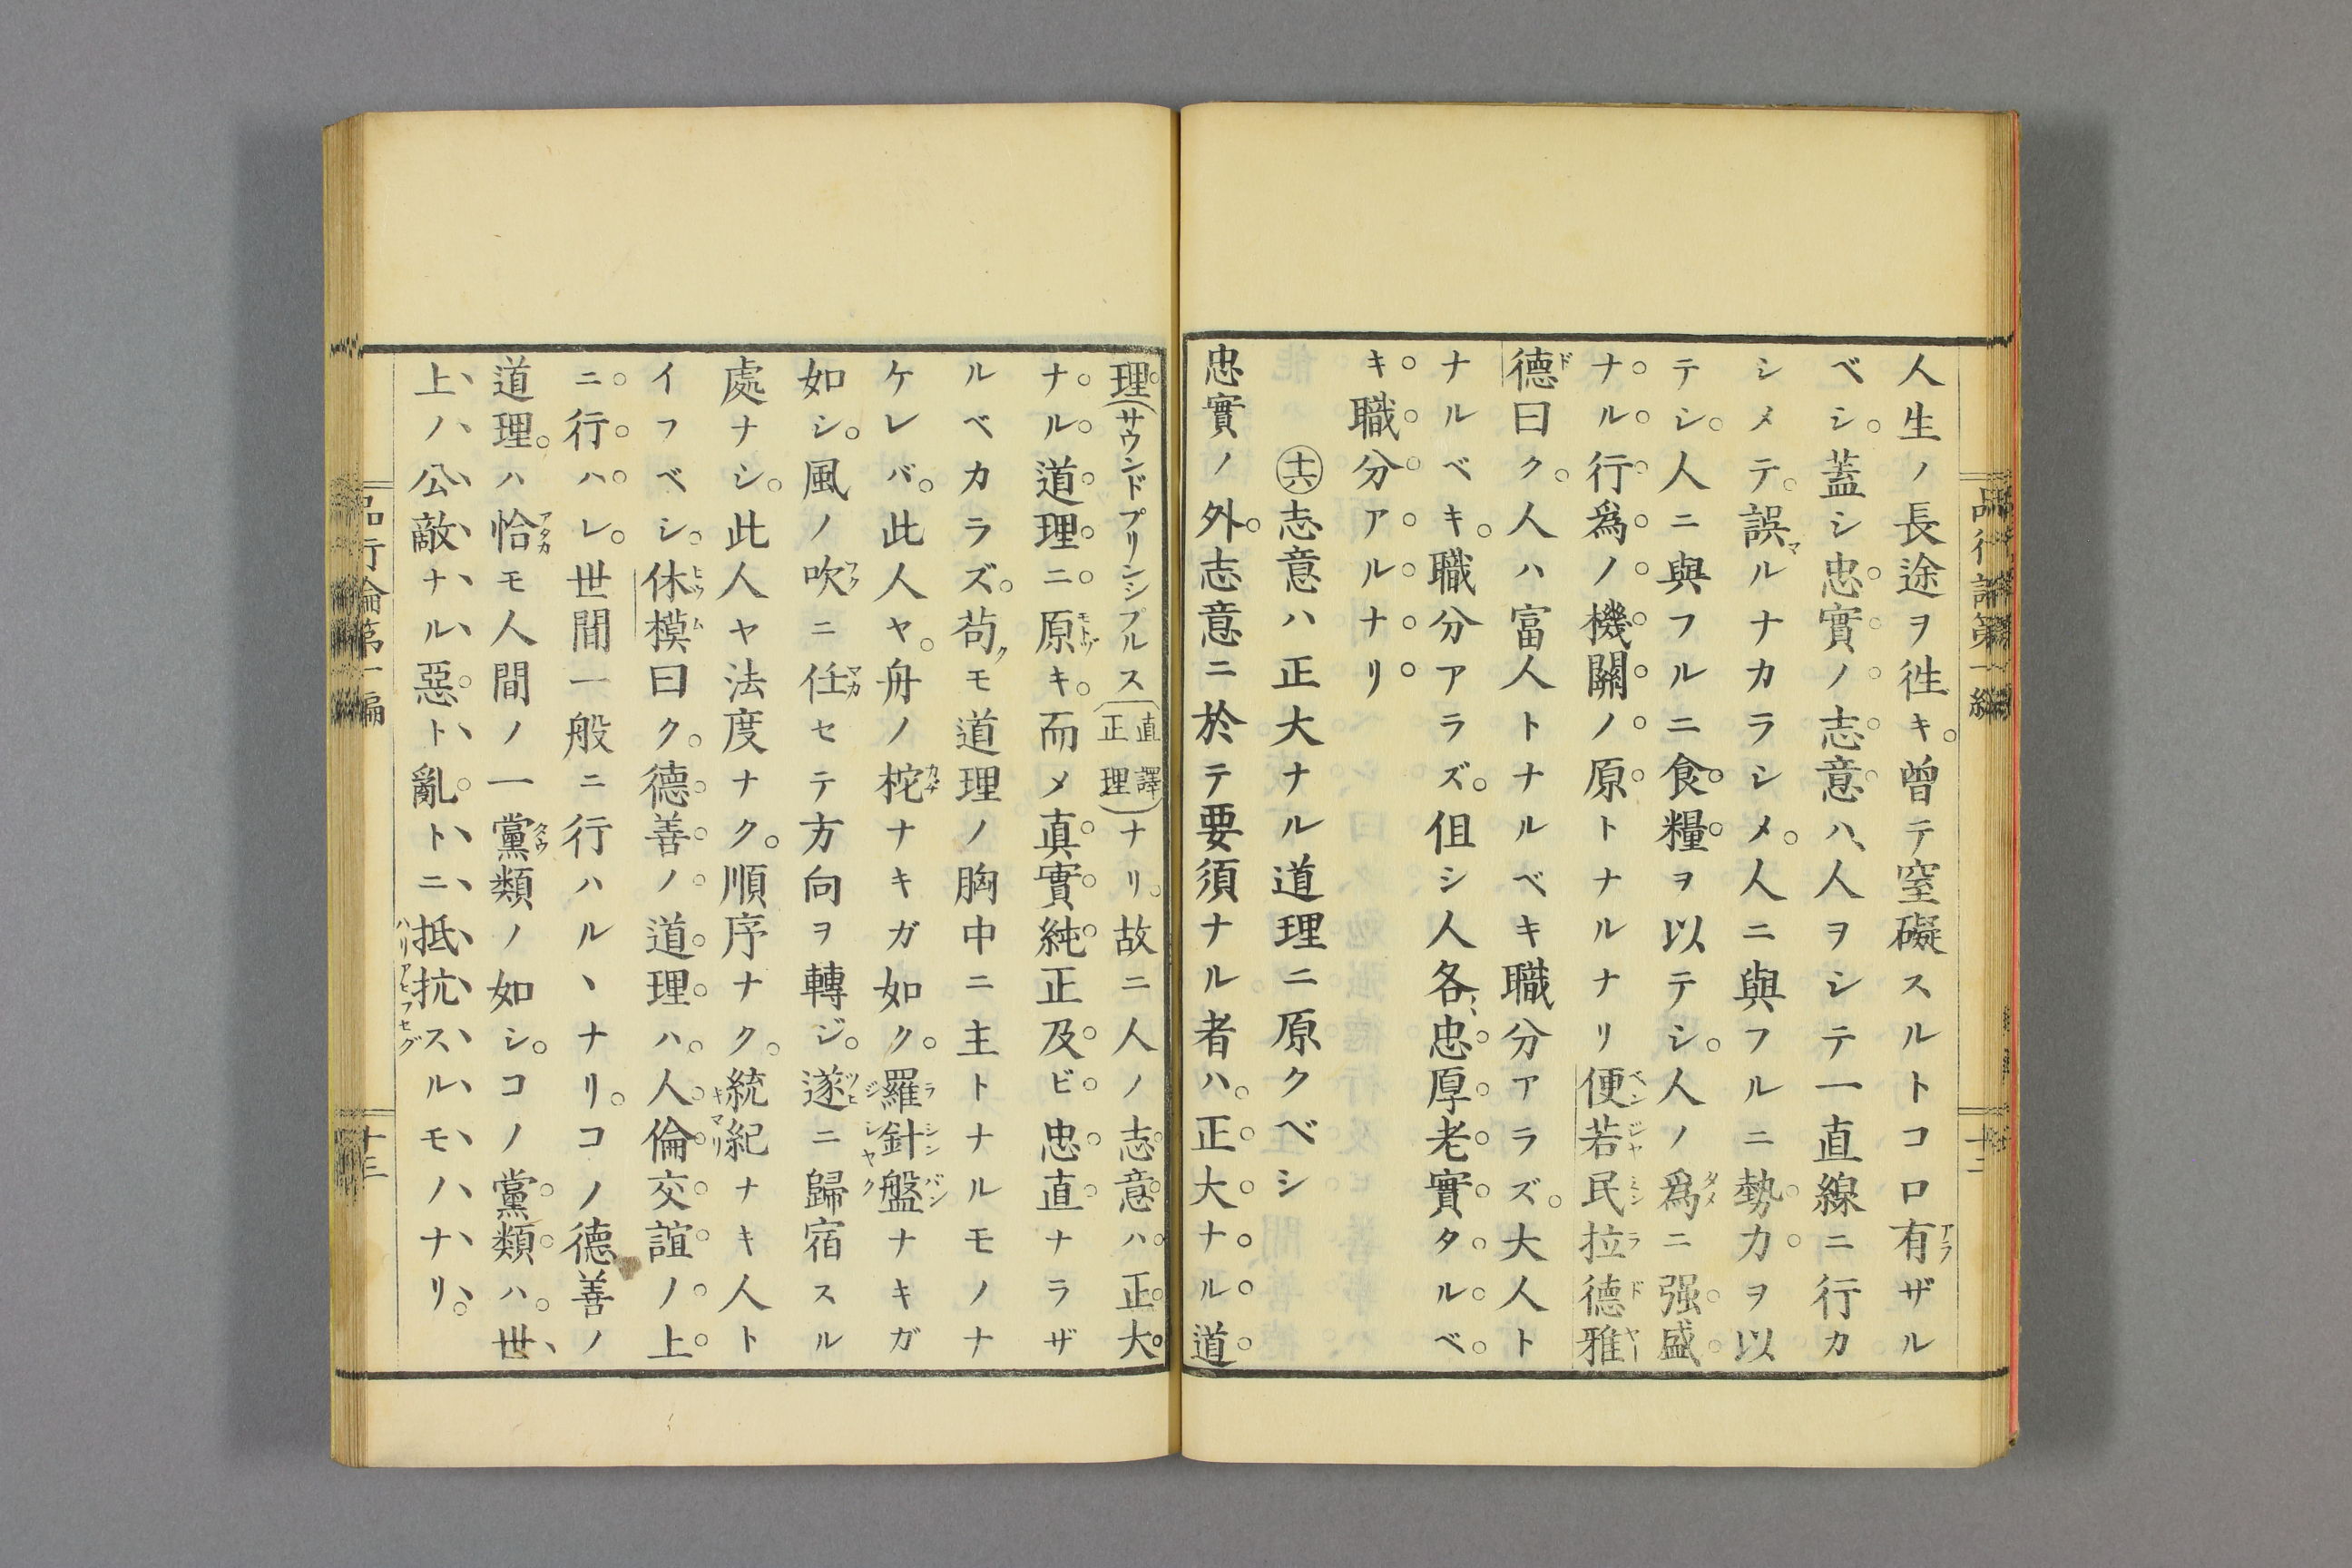 人生ノ長途ヲ徃キ。曽テ窒礙スルトコロ有ザル
ベシ。蓋シ忠實ノ志意ハ、人ヲシテ一直線ニ行カ
シメテ。誤ルナカラシメ。人ニ與フルニ勢力ヲ以
テシ。人ニ與フルニ食糧ヲ以テシ。人ノ爲ニ强盛
ナル行爲ノ機關ノ原トナルナリ便若民拉德雅
德曰ク。人ハ富人トナルベキ職分アラズ。大人ト
ナルベキ。職分アラズ。伹シ人各〻忠厚老實タルベ
キ職分アルナリ
十六志意ハ正大ナル道理ニ原クベシ
忠實ノ外。志意ニ於テ要須ナル者ハ。正大ナル道
理(サウンドプリンシプルス(直譯正理)ナリ。故ニ人ノ志意ハ正大
ナル道理ニ原キ。而メ真實純正及ビ忠直ナラザ
ルベカラズ。苟モ道理ノ胸中ニ主トナルモノナ
ケレバ。此人ヤ。舟ノ柁ナキガ如ク。羅針盤ナキガ
如シ。風ノ吹ニ任セテ方向ヲ轉ジ。遂ニ歸宿スル
處ナシ。此人ヤ法度ナク。順序ナク。統紀ナキ人ト
イフベシ。休模曰ク。德善ノ道理ハ。人倫交誼ノ上
ニ行ハレ。世間一般ニ行ハルヽナリ。コノ德善ノ
道理。ハ恰モ人間ノ一黨類ノ如シ。コノ黨類ハ。世
上ノ公敵ナル惡ト亂トニ抵抗スルモノナリ。
品行論第一編
十二
品行論第一編
十三